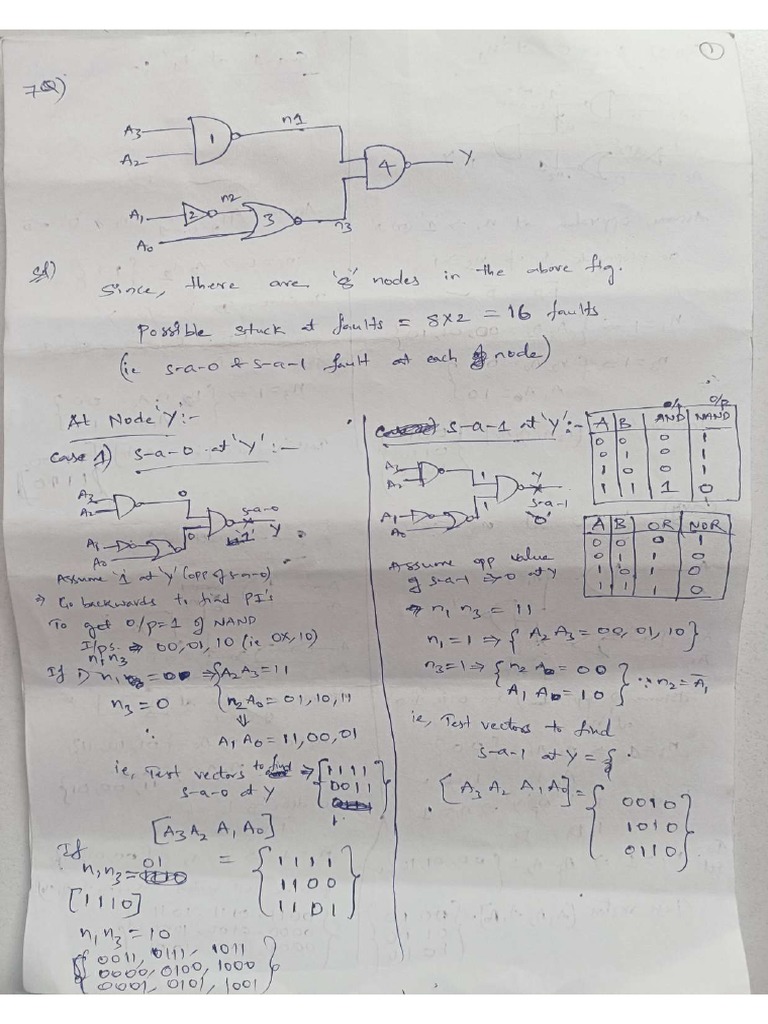 1
7Q)
A3
A2
1
n1
4
Y
A1
2
n2
3
A0
n3
Sol)
Since, there are '8' nodes in the above fig.
Possible stuck at faults = 8x2 = 16 faults
(ie s-a-0 & s-a-1 fault at each node)
At Node 'Y':-
Case 1) s-a-0 at 'Y':-
A3
A2
0
s-a-0
Y
'1'
A1
A0
0
Assume '1' at 'Y' (opp of s-a-0)
⇒ Go backwards to find PI's
To get o/p=1 of NAND
I/ps. ⇒ 00, 01, 10 (ie 0X, 10)
n1 n3
If 1) n1 = 0 ⇒ {A2A3 = 11
n3 = 0 {n2A0 = 01, 10, 11
⇓
∴ A1A0 = 11, 00, 01
ie, Test vectors to find ⇒ {1111
s-a-0 at Y 0011
[A3 A2 A1 A0]
= {1111
1100
1101}
If
n1n3 = 01
[1110]
n1n3 = 10
{0011, 0111, 1011
0000, 0100, 1000
0001, 0101, 1001}
s-a-1 at 'Y':-
A3
A2
1
Y
s-a-1
'0'
A1
A0
1
Assume opp value
of s-a-1 ⇒ 0 at Y
⇒ n1 n3 = 11
n1=1 ⇒ {A2A3 = 00, 01, 10}
n3=1 ⇒ {n2 A0 = 00
A1 A0 = 10} ∵ n2 = A̅1
ie, Test vectors to find
s-a-1 at Y = {
[A3 A2 A1 A0] = {0010
1010
0110}
o/p o/p
A B AND NAND
0 0 0 1
0 1 0 1
1 0 0 1
1 1 1 0
A B OR NOR
0 0 0 1
0 1 1 0
1 0 1 0
1 1 1 0